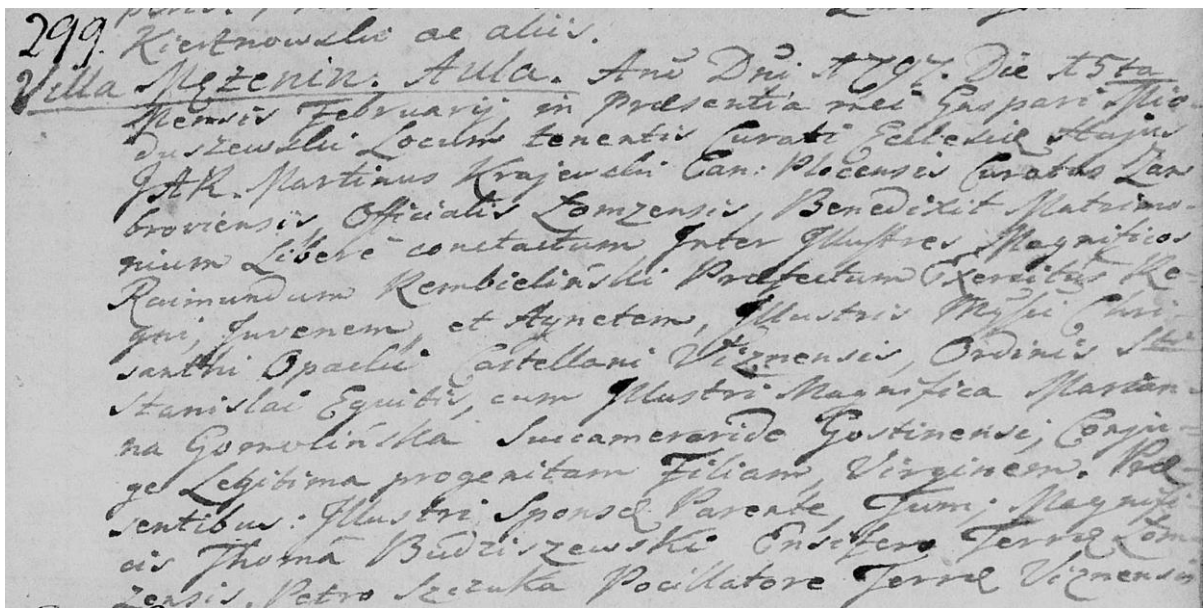 299. Kierznowski ac aliis.
Villa Mężenin. Aula. Anō Dn̄i 1797. Die 15ta
Mensis Februarij, in Præsentia mei Gaspari Mio
duszewski Locum tenentis Curati Ecclesiæ Hujus
Martinus Krajewski Can: Plocensis Curatus Zam
broviensis, Officialis Łomzensis, Benedixit Matrimo-
nium Liberè contractum Inter Illustres Magnificos
Raimundum Rembieliński Præfectum Exercitûs Re-
gni, Juvenem, et Agnetem, Illustris Mgfici Chri-
santhi Opacki Castellani Viznensis, Ordinis Sti
Stanislai Equitis, cum Illustri Magnifica Marian-
na Gomolińska Succameraride Gostinensi, Conju-
ge Legitima progenitam Filiam, Virginem. Præ
sentibus: Illustri Sponsæ Parente, Tum, Magnifi-
cis Thomâ Budziszewski Ensifero Terræ Łom-
zensis, Petro Szczuka Pocillatore Terræ Viznensis